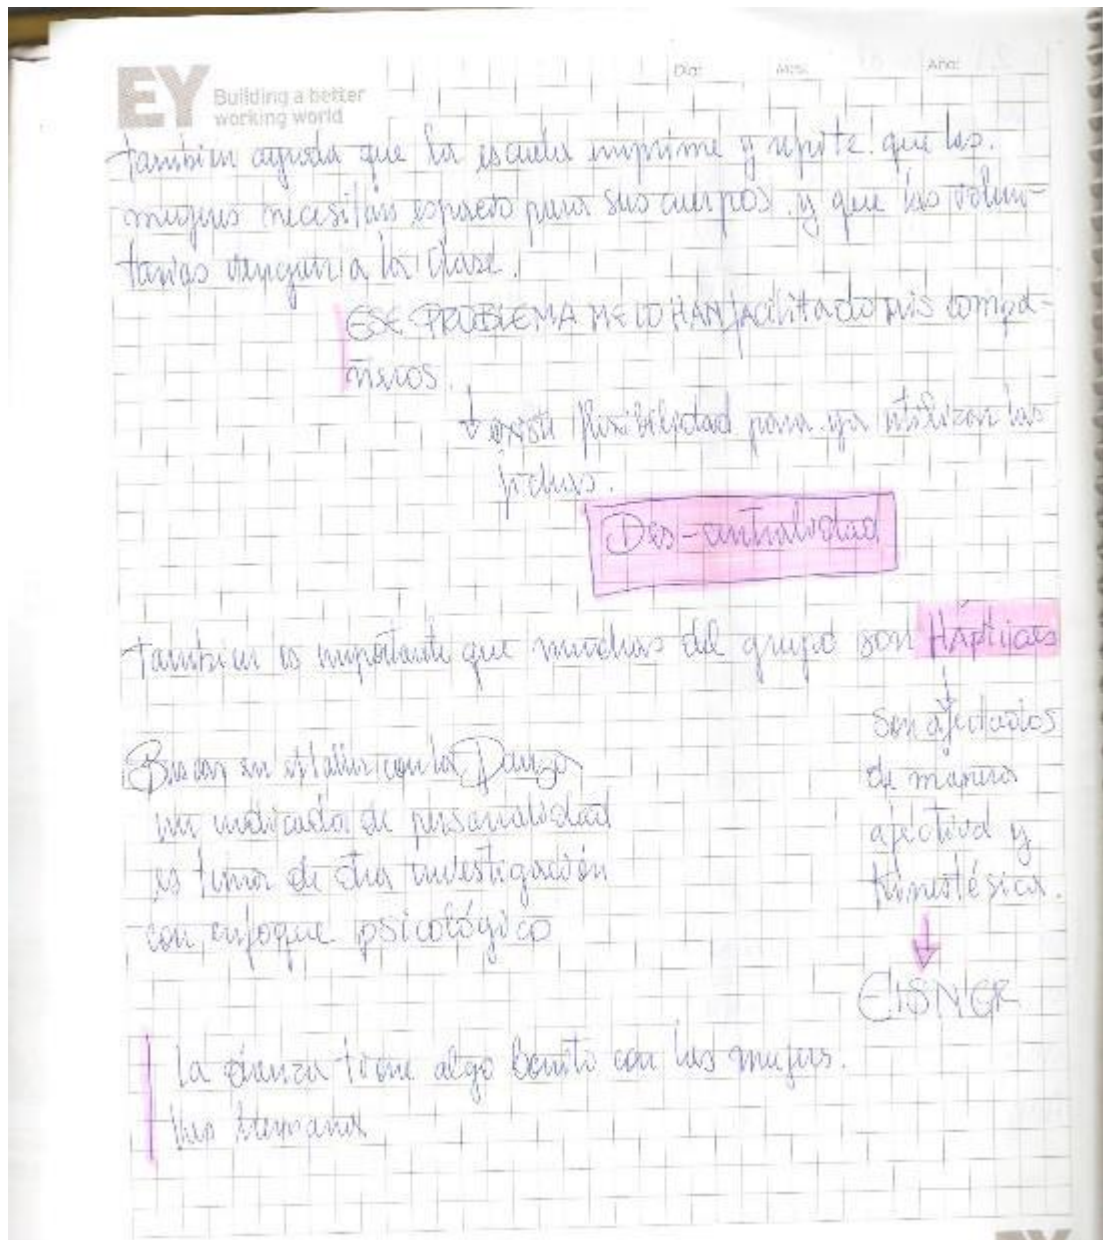 EY Building a better
working world
Día: Mes: Año:
también ayuda que la escuela imprime y repite que las
mujeres necesitan espacio para sus cuerpos, y que las volun-
tarias vengan a la clase.
ESE PROBLEMA ME LO HAN facilitado mis compa-
ñeros.
existe flexibilidad para utilizar las
fichas.
Des-centralidad
también es importante que muchas del grupo son HÁpticas
son afectados
de manera
afectiva y
kinestésica.
EISNER
Buscar en el taller con la Danza
un indicador de personalidad
es tema de otra investigación
con enfoque psicológico
La danza tiene algo bonito con las mujeres.
EY